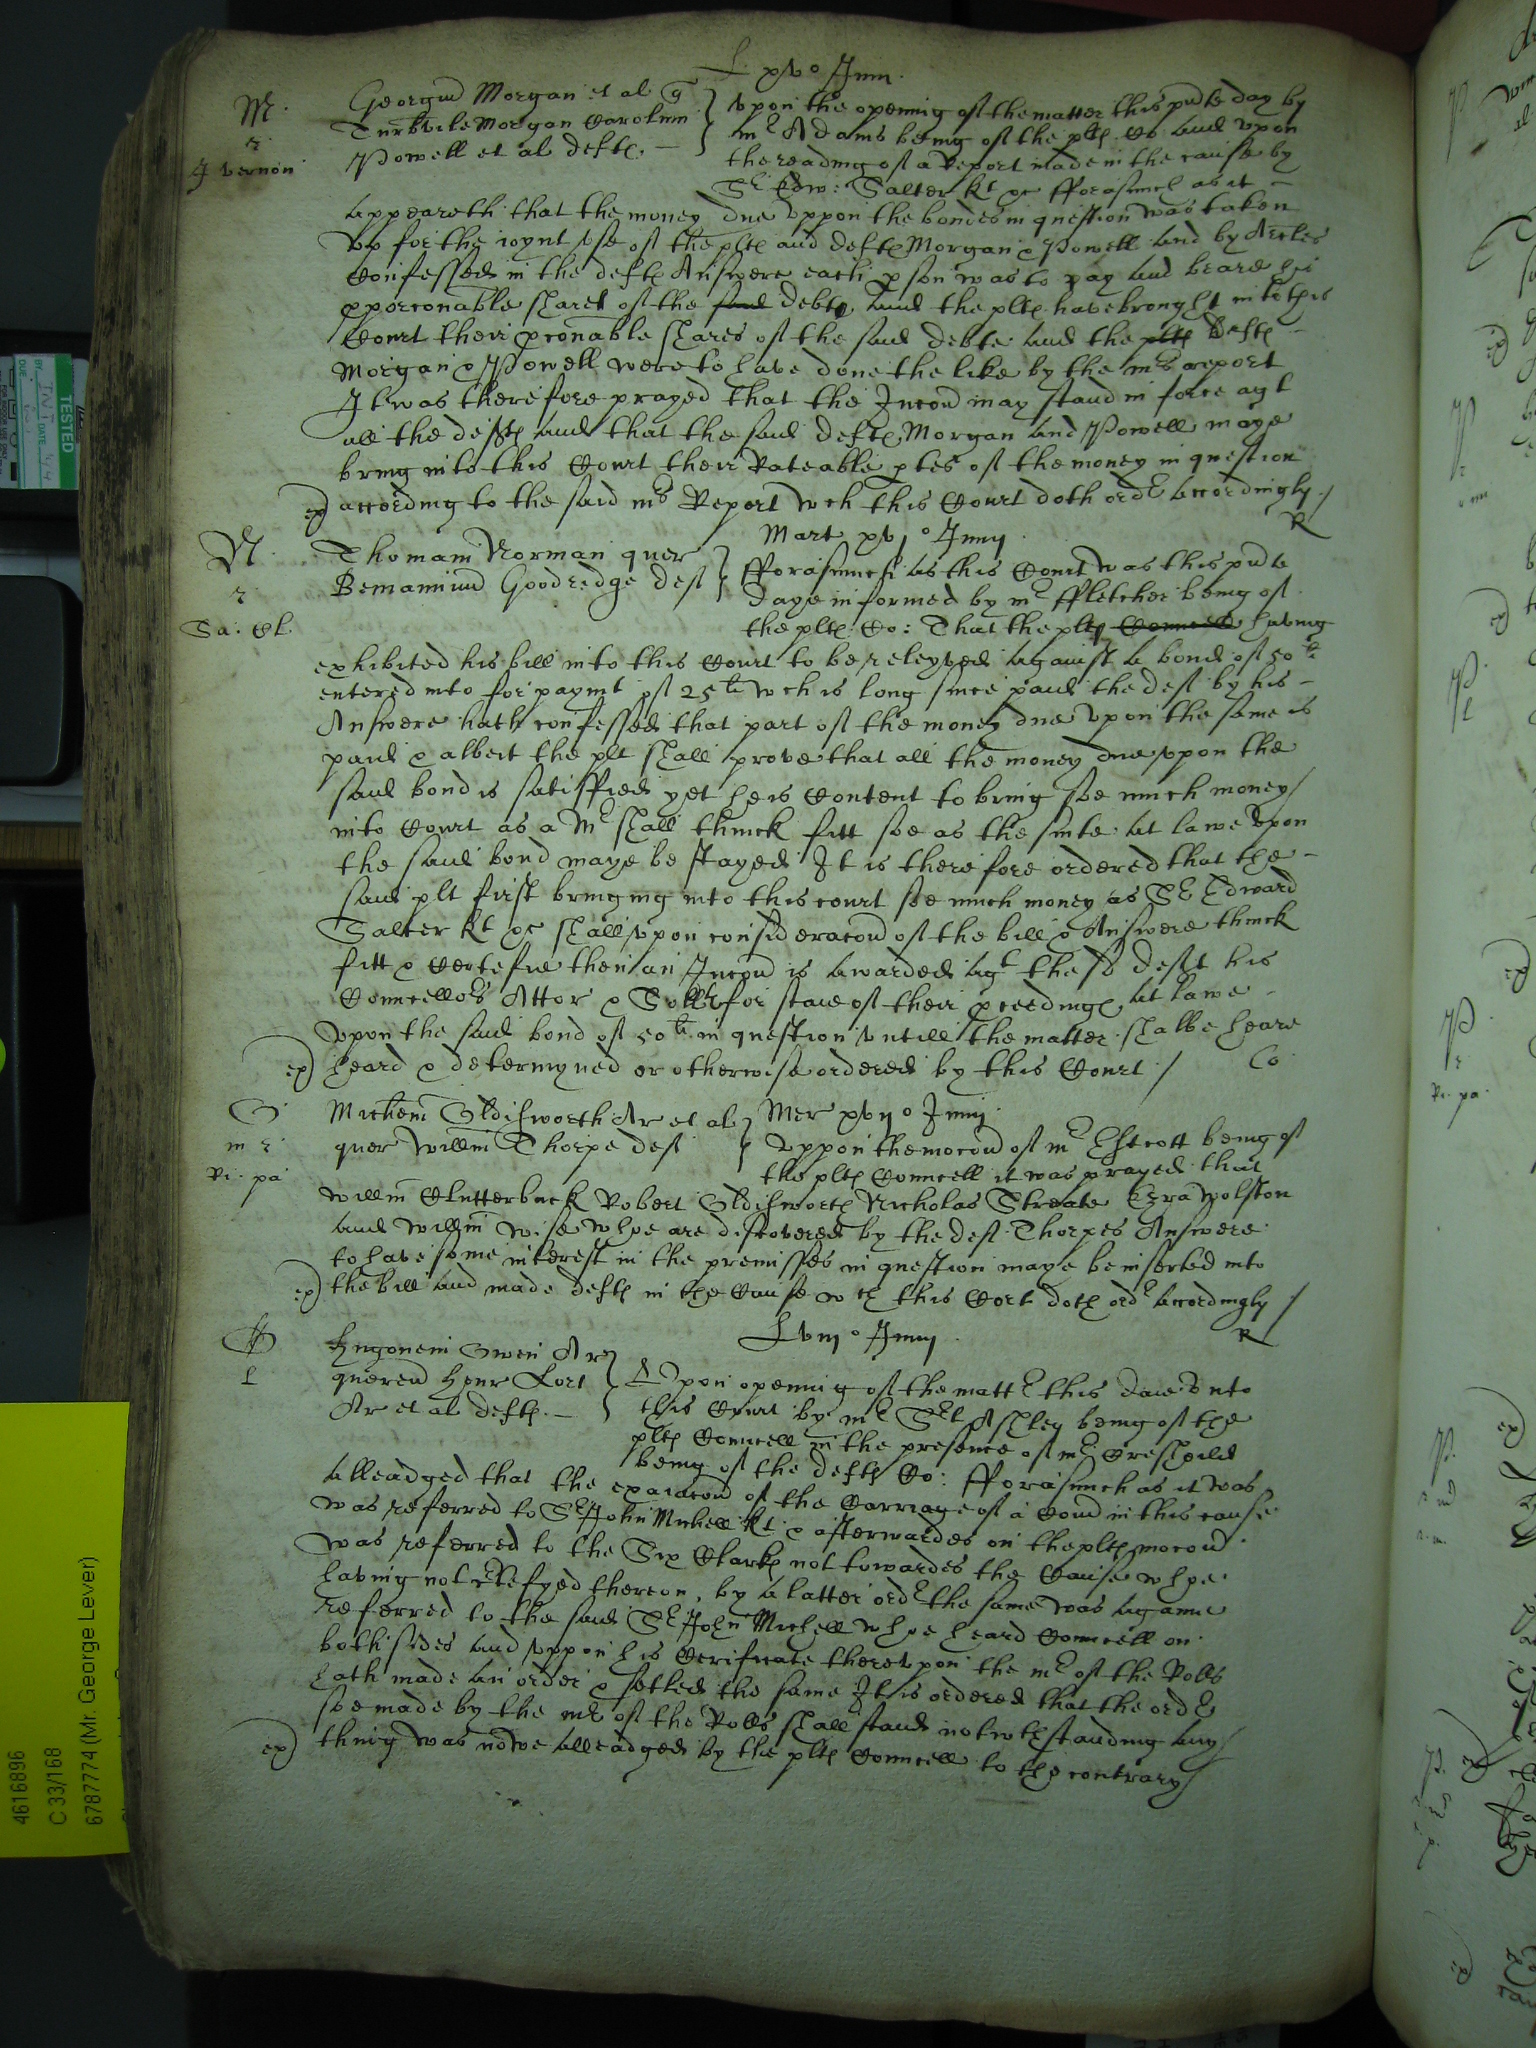 L xvo Junij
M. Georgiu Morgan et al q
Turbvile Morgan Carolum
r
J vernon Powell et al defts. —
vpon the opening of the matter this pnte day by
mr Adams being of the plts Co and vpon
the reading of a Report made in the cause by
Sr Edw: Salter kt &c fforasmch as it —
appeareth that the money due vppon the bondes in question was taken
vp for the ioynt vse of the plts and defts Morgan & Powell and by Arcles
Confessed in the defts Answere each pson was to pay and beare his
pporconable shares of the said debte and the plts have brought into this
Court their pconable shares of the said debte and the plts defts —
Morgan & Powell were to have done the like by the mrs report
It was therefore prayed that the Incon may stand in force agt
all the defts and that the said defts Morgan and Powell maye
bring into this Court their Rateable ptes of the money in question
ex) according to the said mrs Report wch this Court doth ordr accordingly /
R
Mart xvjo Junij
N. Thomam Norman quer
Beniaminu Goodredge deft
r
Sa: Cl
fforasmuch as this Court was this pnte
daye informed by mr ffletcher being of
the plts Co: That the plts Councell having
exhibited his bill into this Court to be releyved against a bond of 50li
entered into for paymt of 25li wch is long since paid the deft by his —
Answere hath confessed that part of the money due vpon the same is
paid & albeit the plt shall prove that all the money due vpon the
said bond is satisffied yet he is Content to bring soe much money/
into Court as a Mr shall thinck fitt soe as the suite at lawe vpon
the said bond maye be stayed It is therefore ordered that the —
said plt first bringing into this court soe much money as Sr Edward
Salter kt &c shall vpon consideracon of the bill & Answere thinck
fitt & Certefie then an Incon is awarded agt the sd deft his
Councellors Attor & Sollr for staie of their pceedings at lawe —
vpon the said bond of 50li in question vntill the matter shalbe heare
ex) heard & determyned or otherwise ordered by this Court / Co
O Michem Oldisworth Ar et al
m r
quer Willm Thorpe deft
Ri: pa
Mer xvijo Junij
vppon the mocon of mr Estcott being of
the plts Councell it was prayed that
Willm Clutterbuck Robert Oldisworth Nicholas Streate Ezra Wolston
and Willm Wise whoe are discovered by the deft Thorpes Answere
to have some interest in the premisses in question maye be inserted into
ex) the bill and made defts in the Cause wch this Cort doth ordr accordingly /
R
L vmo Junij
Hugonem Owen Ar
L
queren Henr Lort
Ar et al defts. —
Vpon opening of the mattr this daie vnto
this Court by mr Srt Ashley being of the
plts Councell in the presence of mr Cresheld
being of the defts Co: fforasmuch as it was
alleadged that the exaiacon of the Carriage of a Com in this cause
was referred to Sr John Michell kt & afterwardes on the plts mocon
was referred to the Six Clarks not towardes the Cause whoe
having not certefyed thereon, by a latter ordr the same was againe
referred to the said Sr John Michell whoe heard Councell on
both sides and vppon his Certificate therevpon the mr of the Rolls
hath made an order & setled the same It is ordered that the ordr
soe made by the mr of the Rolls shall stand notwthstanding any/
ex) thing was nowe alleadged by the plts Councell to the contrary /
TESTED
4616896
C 33/168
6787774 (Mr. George Lever)